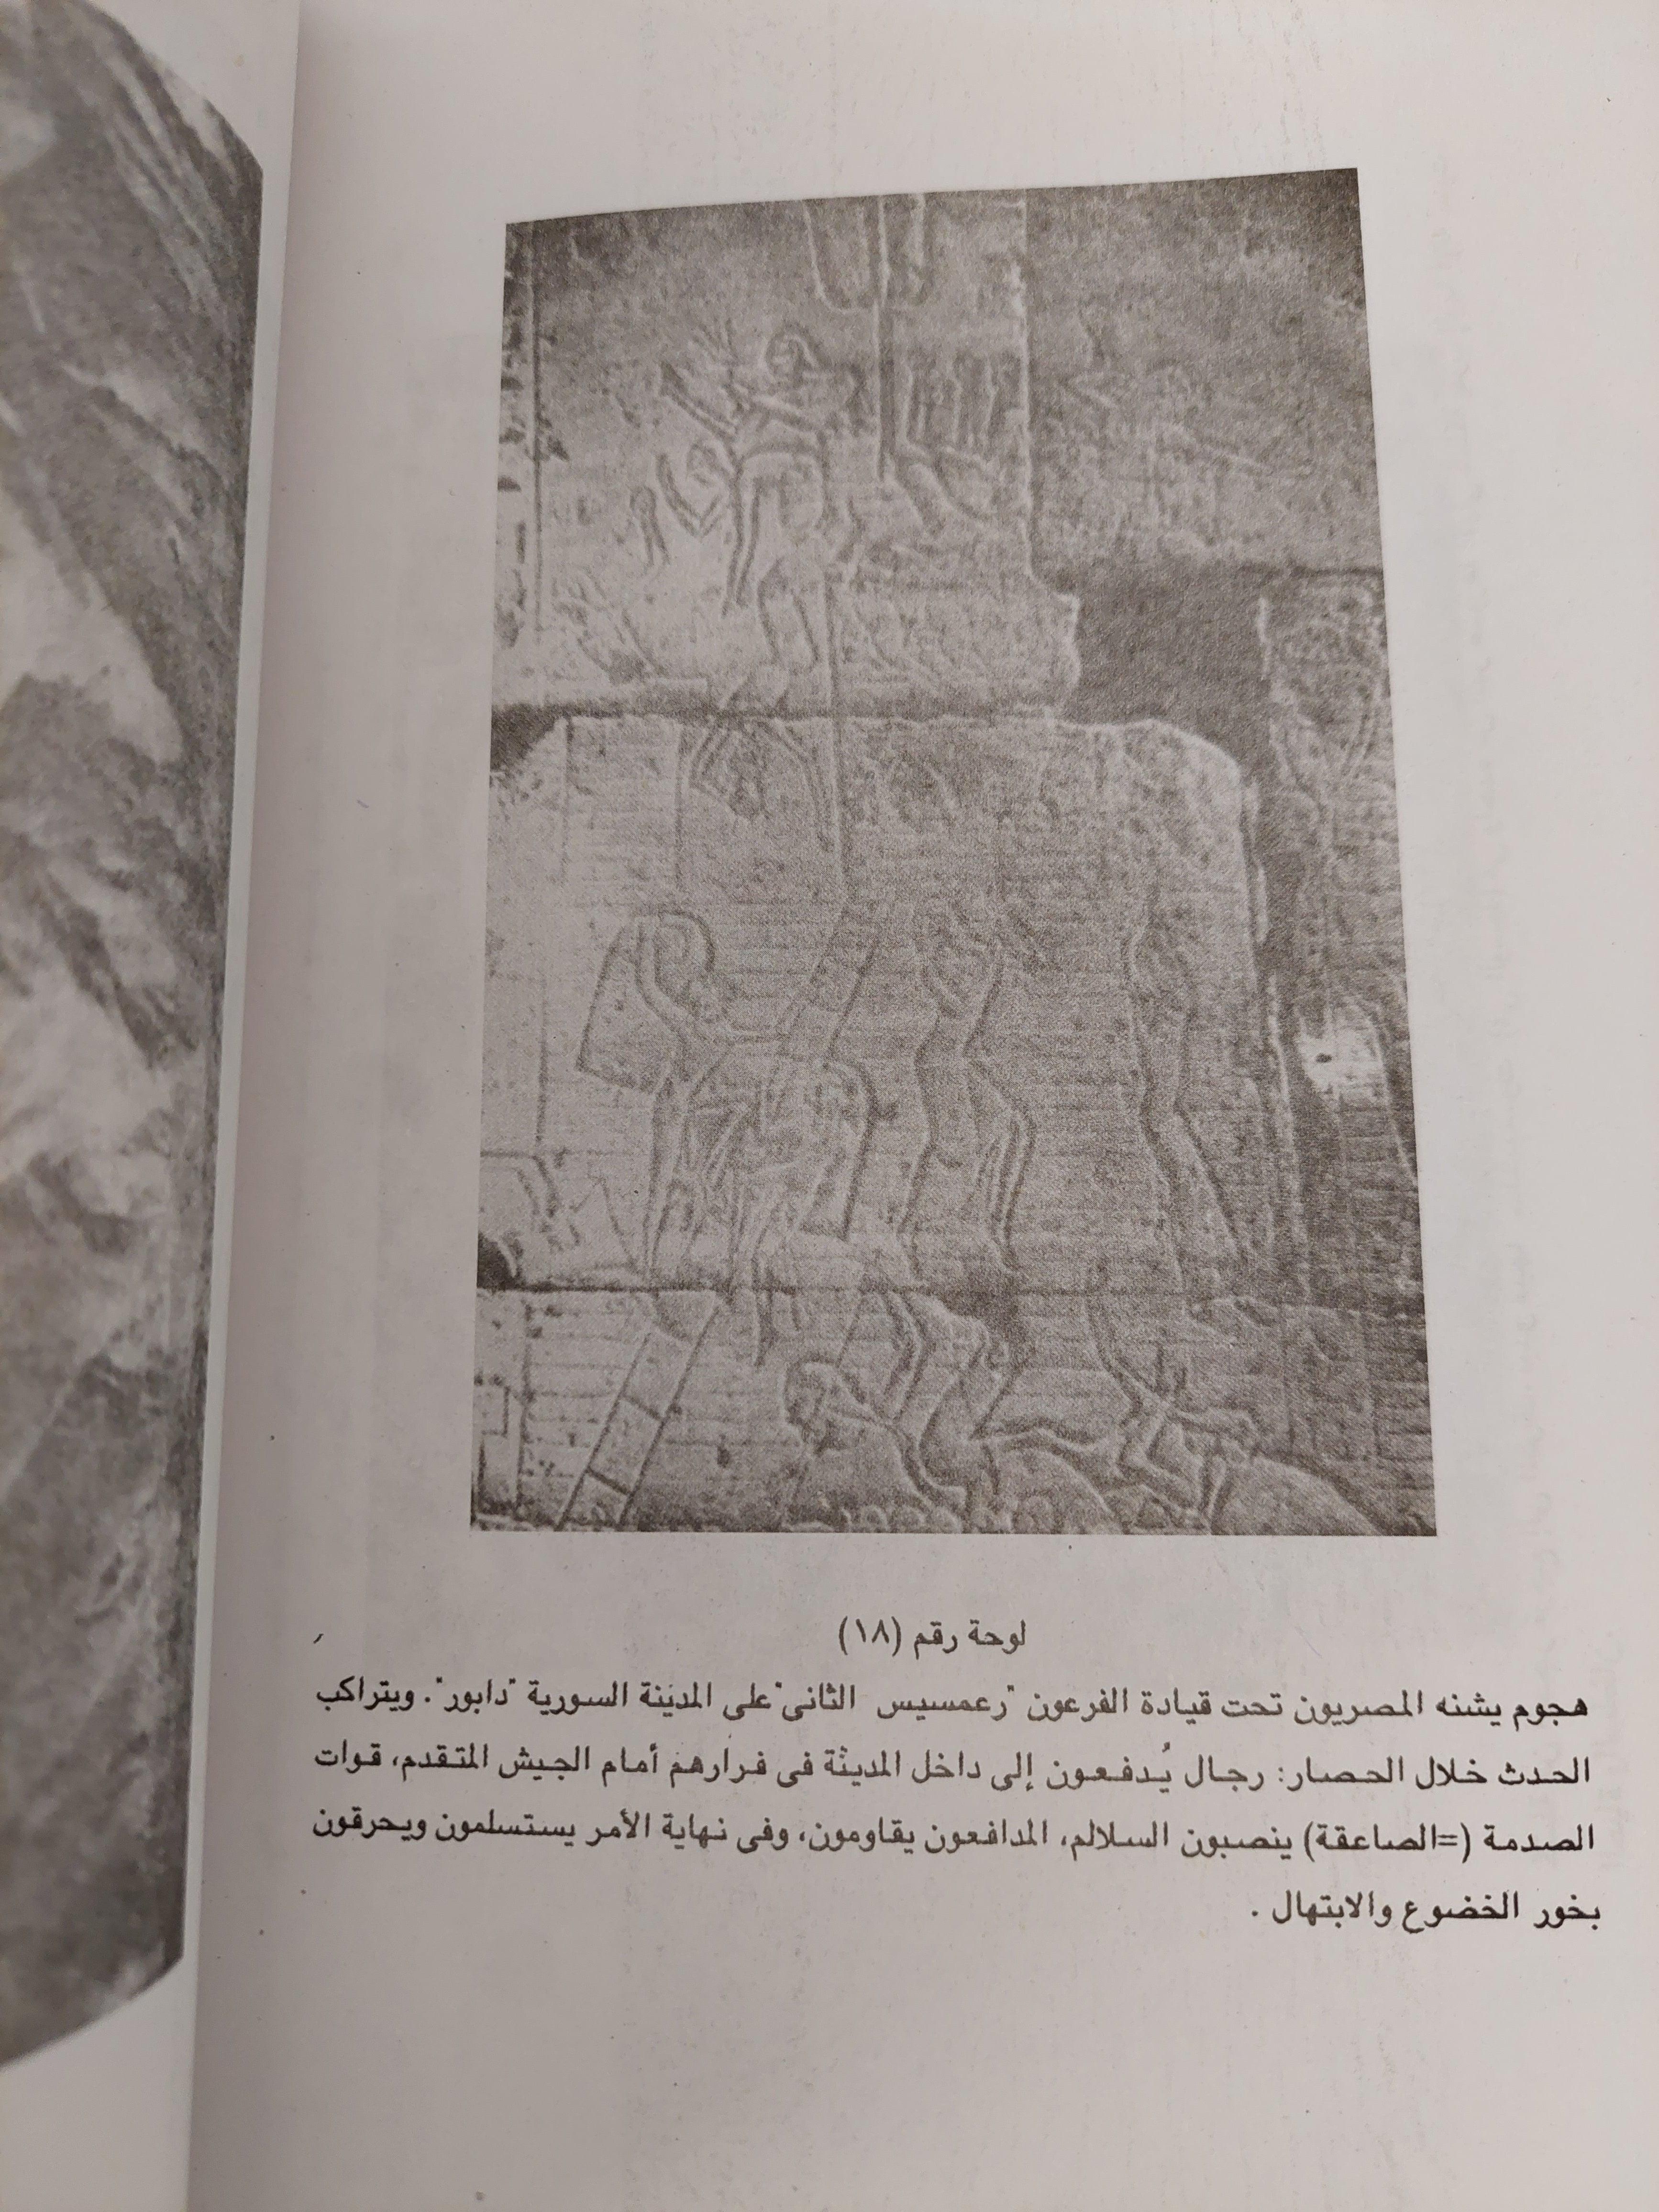 لوحة رقم (١٨)
هجوم يشنه المصريون تحت قيادة الفرعون "رعمسيس الثانى" على المدينة السورية "دابور". ويتراكب
الحدث خلال الحصار: رجال يُدفعون إلى داخل المدينة فى فرارهم أمام الجيش المتقدم، قوات
الصدمة (=الصاعقة) ينصبون السلالم، المدافعون يقاومون، وفى نهاية الأمر يستسلمون ويحرقون
بخور الخضوع والابتهال .